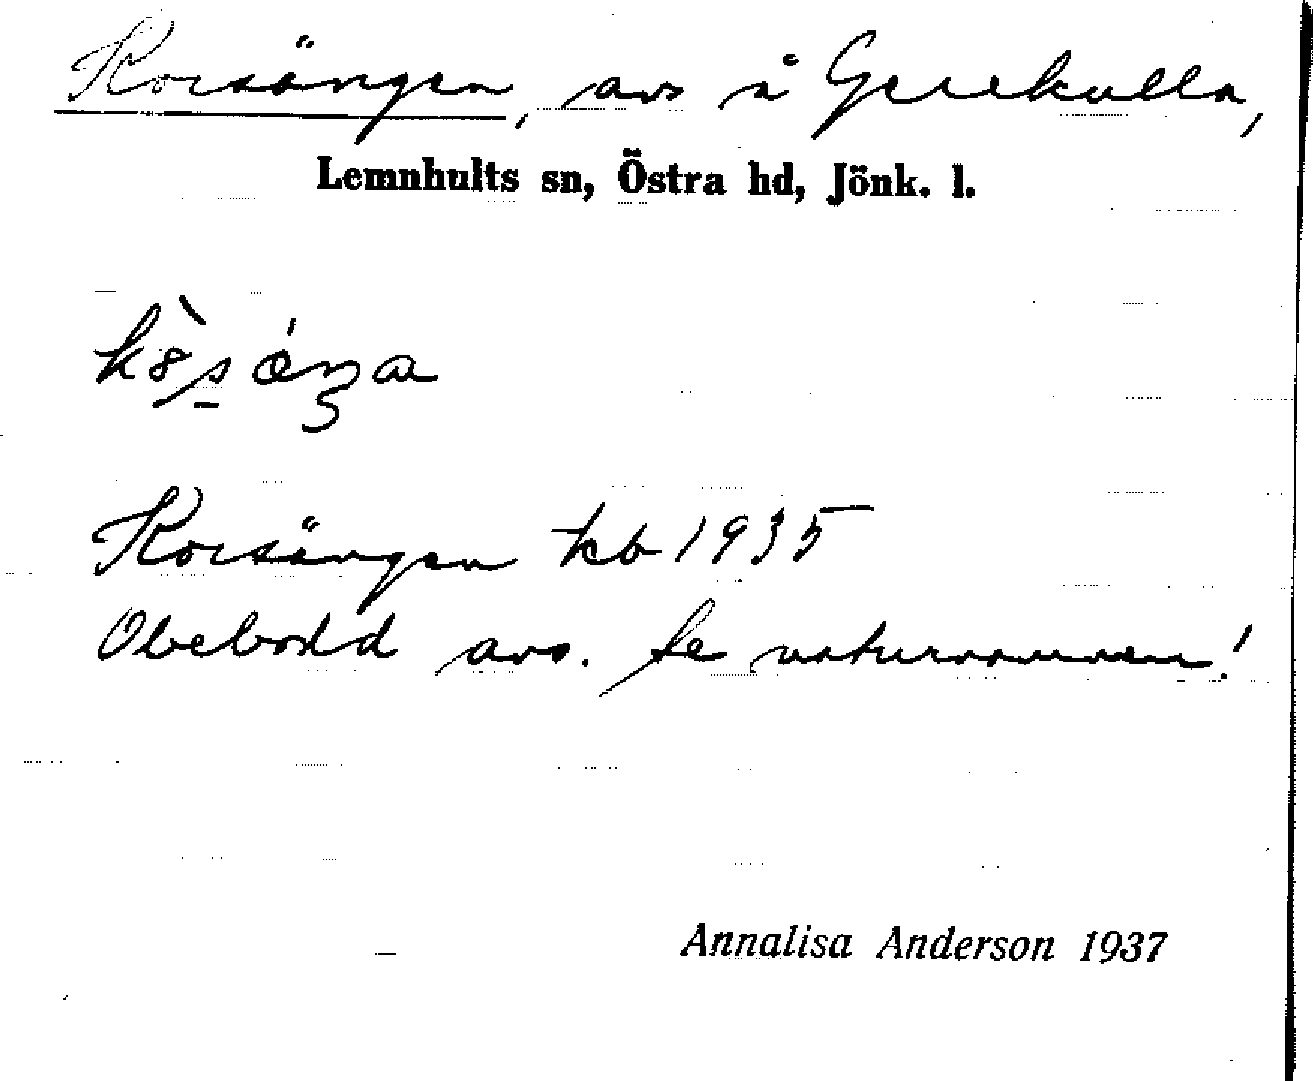 Korsängen, avs å Gerekulla,
Lemnhults sn, Östra hd, Jönk. l.
Korsängen kb 1935
Obebodd avs. Se naturnamnen!
Annalisa Anderson 1937